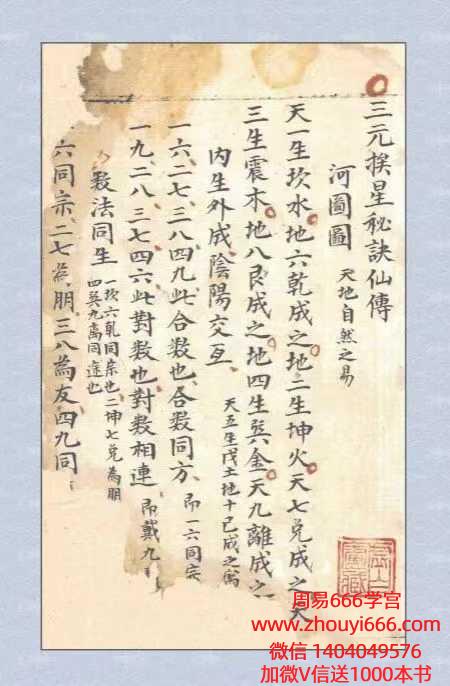 三元挨星秘訣仙傳
河圖圖 天地自然之易
天一生坎水地六乾成之地二生坤火天七兌成之天
三生震木地八艮成之地四生巽金天九離成之
內生外成陰陽交互 天五生戊土地十己成之
一六二七三八四九此合数也合数同方 即一六同宗
一九二八三七四六此對数也對数相連 即戴九
数法同生 一坎六乾同宗也二坤七兌為朋
四巽九离同道也
六同宗二七為朋三八為友四九同
周易666学宫
www.zhouyi666.com
微信 1404049576
加微V信送1000本书